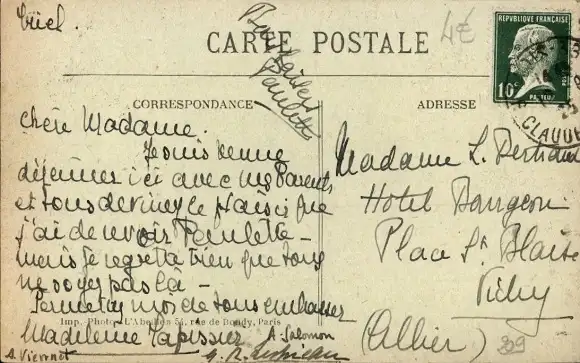 Triel.
Bons baisers
Paulette
4€
CARTE POSTALE
RÉPUBLIQUE FRANÇAISE
POSTES
10c
PASTEUR
CLAUDE
CORRESPONDANCE
ADRESSE
Chère Madame.
Je suis venue
déjeuner ici avec mes Parents
et vous devinez le plaisir que
j'ai de voir Paulette –
mais je regrette bien que vous
ne soyez pas là –
Permettez moi de vous embrasser
Madeleine Tapissier
A. Salomon
A. Viennot
Imp. Photo. L'Abeille 54, rue de Bondy, Paris
Madame L. Bertrand
Hotel
Place St Blaise
Vichy
(Allier)